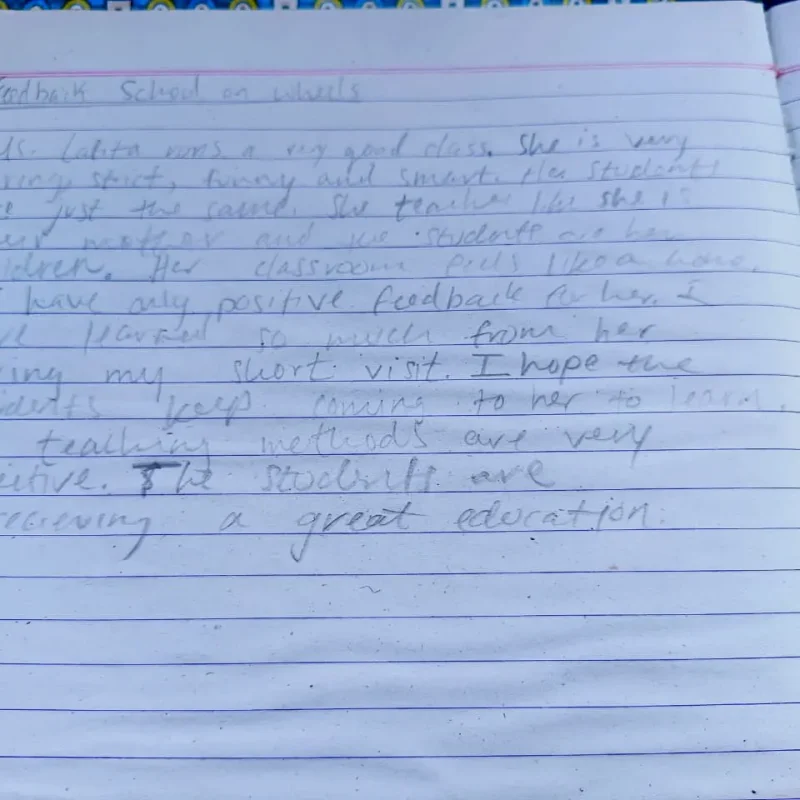 eedback School on wheels
Ms. Lalita runs a very good class. She is very
ring, strict, funny and smart. Her students
e just the same. She teaches like she is
our mother and we students are her
ildren. Her classroom feels like a home.
I have only positive feedback for her. I
ve learned so much from her
ing my short visit. I hope the
dents keep coming to her to learn.
teaching methods are very
The students are
recieving a great education.